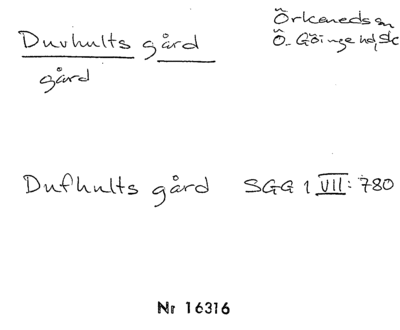 Duvhults gård
gård
Örkeneds sn
Ö. Göinge hd, Sk
Dufhults gård SGG 1 VII: 780
Nr 16316